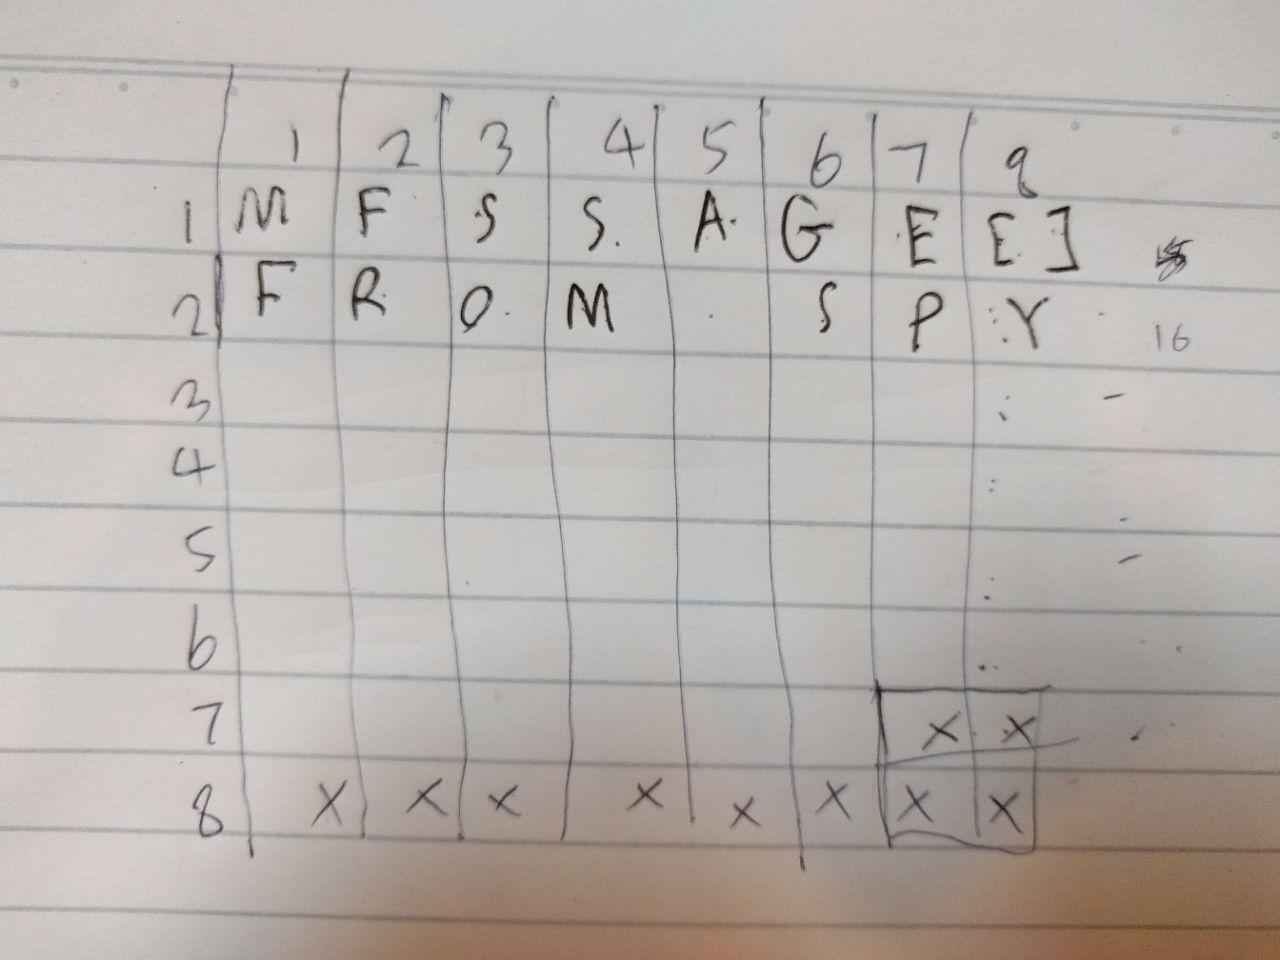 1 2 3 4 5 6 7 8
1 M F S S A G E E ]
2 F R O M S P Y 16
3
4
5
6
7 X X
8 X X X X X X X X